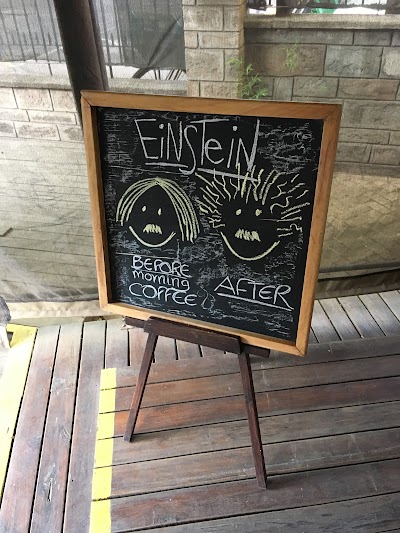 EiNSTeiN
BEFORE
morning
COFFEE
AFTER